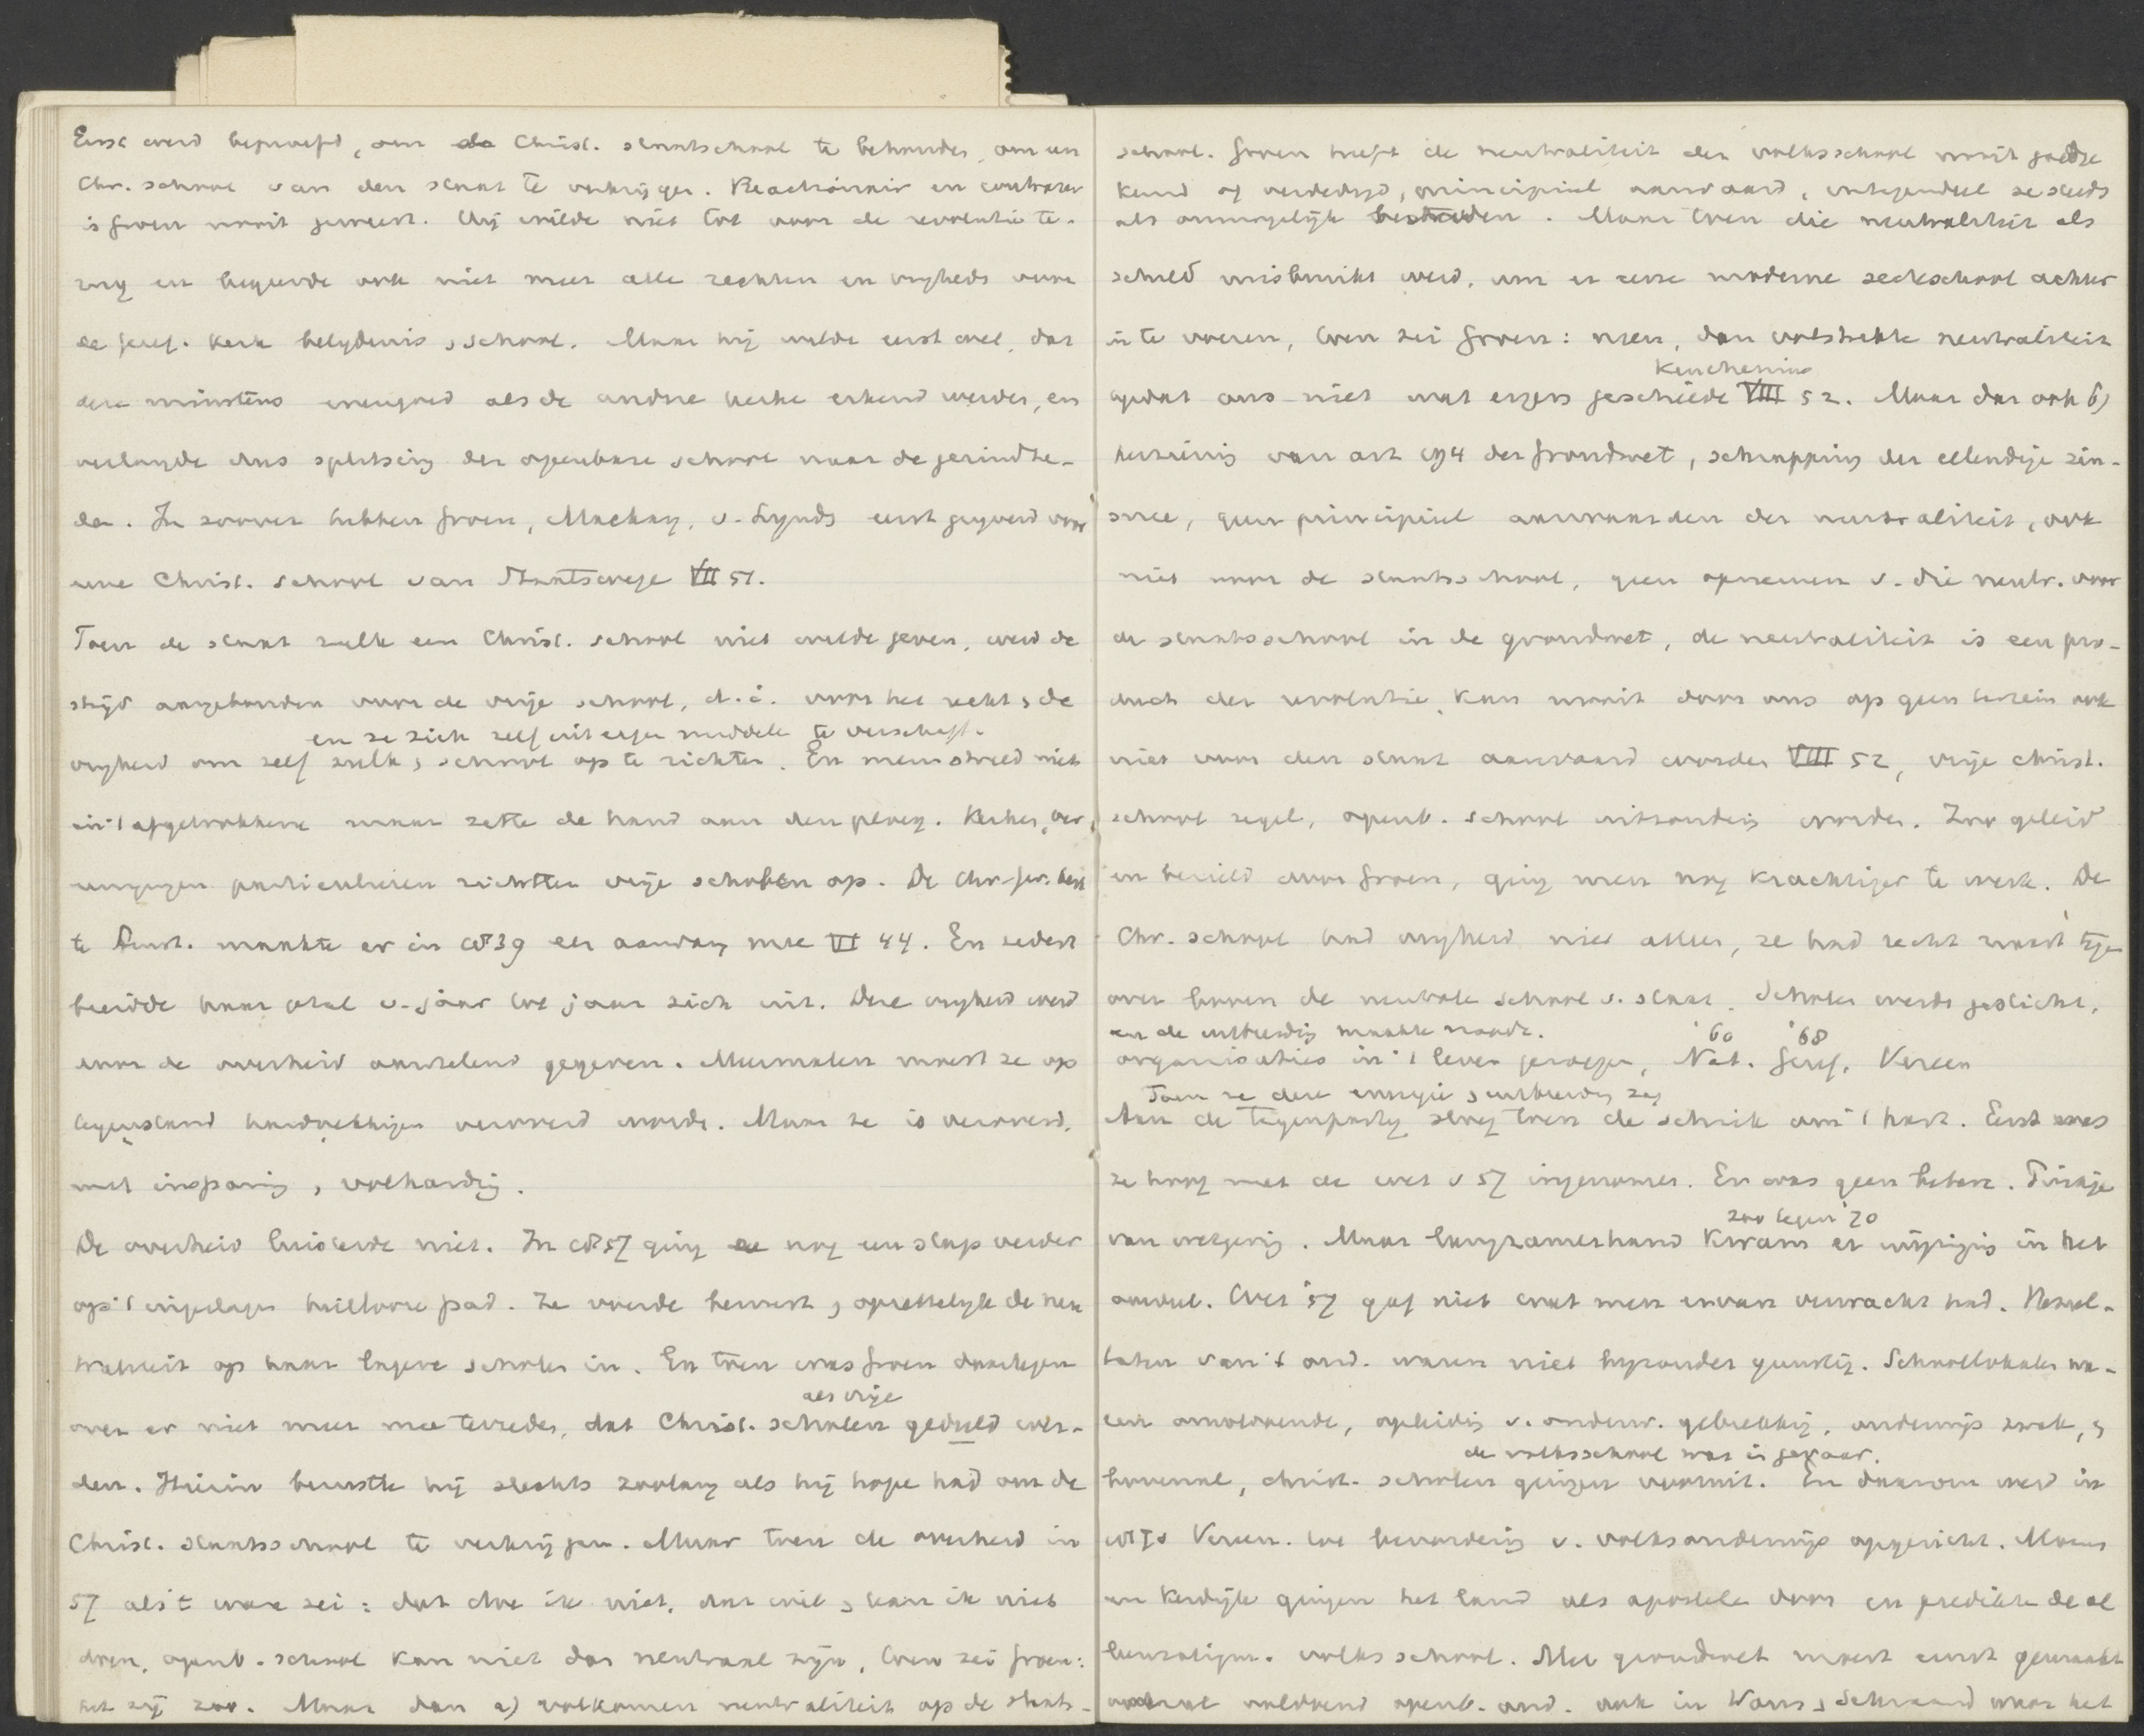 Eerst werd beproefd, om de Christ. staatschool te behouden, om een
Chr. school van den staat te verkrijgen. Reactionair en contrarev
is Groen nooit geweest. Hij wilde niet tot voor de revolutie te-
rug en begeerde ook niet meer alle rechten en vrijheds voor
de Geref. Kerk belijdenis, school. Maar hij wilde eerst wel, dat
deze minstens evengoed als de andre kerke erkend werden, en
verlangde dus splitsing der openbare school naar de gezindhe-
den. In zoover hebben Groen, Mackay, v. Lynds eerst geijverd voor
eene Christ. school van Staatswege VII 51.
Toen de staat zulk een Christ. school niet wilde geven, werd de
strijd aangebonden voor de vrije school, d.i. voor het recht, de
en ze zich zelf uit eigen middele te verschaff.
vrijheid om zelf zulk, school op te richten. En men streed niet
in 't afgetrokkene maar zette de hand aan den ploeg. Kerken, ver
eenigingen particulieren richtten vrije scholen op. De Chr. Ger. kerk
te Amst. maakte er in 1839 een aanvang mee VI 44. En sedert
breidde haar getal v. jaar tot jaar zich uit. Deze vrijheid werd
door de overheid aarzelend gegeven. Meermalen moest ze op
tegenstand hardnekkigen veroverd worde. Maar ze is veroverd,
met inspanning, volharding.
De overheid luisterde niet. In 1857 ging ze nog een stap verder
op 't ingeslagen heillooze pad. Ze voerde bewust, opzettelijk de neu
traliteit op haar lagere scholen in. En toen was Groen daartegen
als vrije
over er niet meer mee tevreden, dat Christ. scholen geduld wer-
den. Hierin berustte hij slechts zoolang als hij hope had om de
Christ. staatsschool te verkrijgen. Maar toen de overheid in
57 als 't ware zei: dat doe ik niet, dat wil, kan ik niet
doen, openb. school kan niet dan neutraal zijn, toen zei Groen:
het zij zoo. Maar dan a) volkomen neutraliteit op de staats-
school. Groen heeft de neutraliteit der volksschool nooit goedge
keurd of verdedigd, principieel aanvaard, integendeel ze steeds
als onmogelijk bestreden. Maar toen die neutraliteit als
schild misbruikt werd, om er eene moderne secteschool achter
in te voeren, toen zei Groen: neen, dan volstrekte neutraliteit
Keuchenius
opdat ons niet wat ergers geschiede VIII 52. Maar dan ook b)
herziening van art 194 der Grondwet, schrapping der ellendige zin-
snee, geen principieel aanvaarden der neutraliteit, ook
niet voor de staatsschool, geen opnemen v. die neutr. voor
de staatsschool in de grondwet, de neutraliteit is een pro-
duct der revolutie, kan nooit door ons op geen terrein ook
niet voor den staat aanvaard worden VIII 52, vrije christ.
school regel, openb. school uitzondering worden. Zoo geleid
en bezield door Groen, ging men nog krachtiger te werk. De
Chr. school had vrijheid niet alleen, ze had recht naast tegen
over boven de neutrale school v. staat. Scholen werde gesticht,
en de uitbreiding maakte noode. '60 '68
organisaties in 't leven geroepen, Nat. Geref. Vereen
Toen ze deze energie, uitbreiding zag
Aan de tegenpartij sloeg toen de schrik om 't hart. Eerst was
ze hoog met de wet v 57 ingenomen. En was geen betere. Puikje
zoo tegen '70
van wetgeving. Maar langzamerhand kwam er wijziging in het
oordeel. Wet 57 gaf niet wat men ervan verwacht had. Resul-
taten van 't ond. waren niet bijzonder gunstig. Schoollokalen wa-
ren onvoldoende, opleiding v. onderw. gebrekkig, onderwijs zwak, &
de volksschool was in gevaar.
bovenal, christ. scholen gingen vooruit. En daarom werd in
Vereen. tot bevordering v. volksonderwijs opgericht. Moens
en Kerdijk gingen het land als apostele door en predikte de al
leenzaligm. volksschool. Met grondwet moest ernst gemaakt
overal voldoend openb. ond. ook in Wons, Schraard waar het